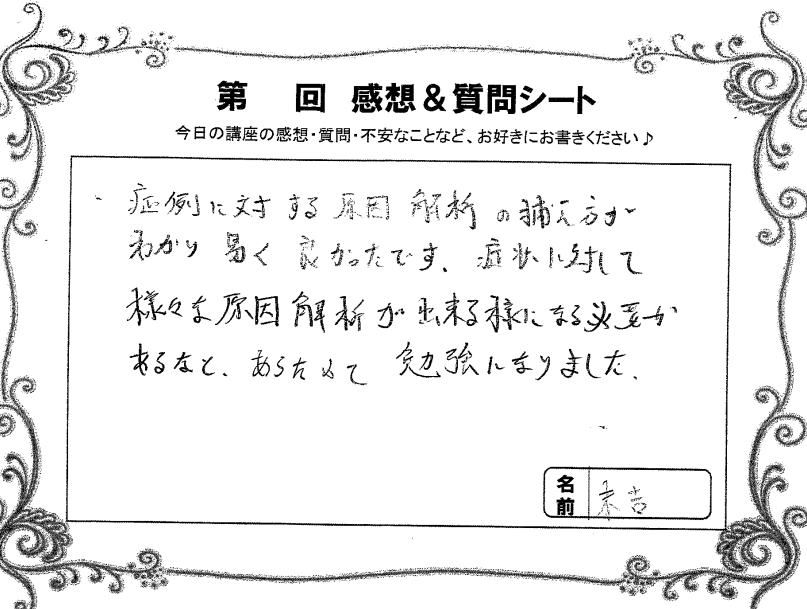 第　回 感想＆質問シート
今日の講座の感想・質問・不安なことなど、お好きにお書きください♪
・症例に対する原因解析の捕え方が
わかり易く良かったです。症状に対して
様々な原因解析が出来る様になる必要が
あるなと、あらためて勉強になりました。
名前 末吉